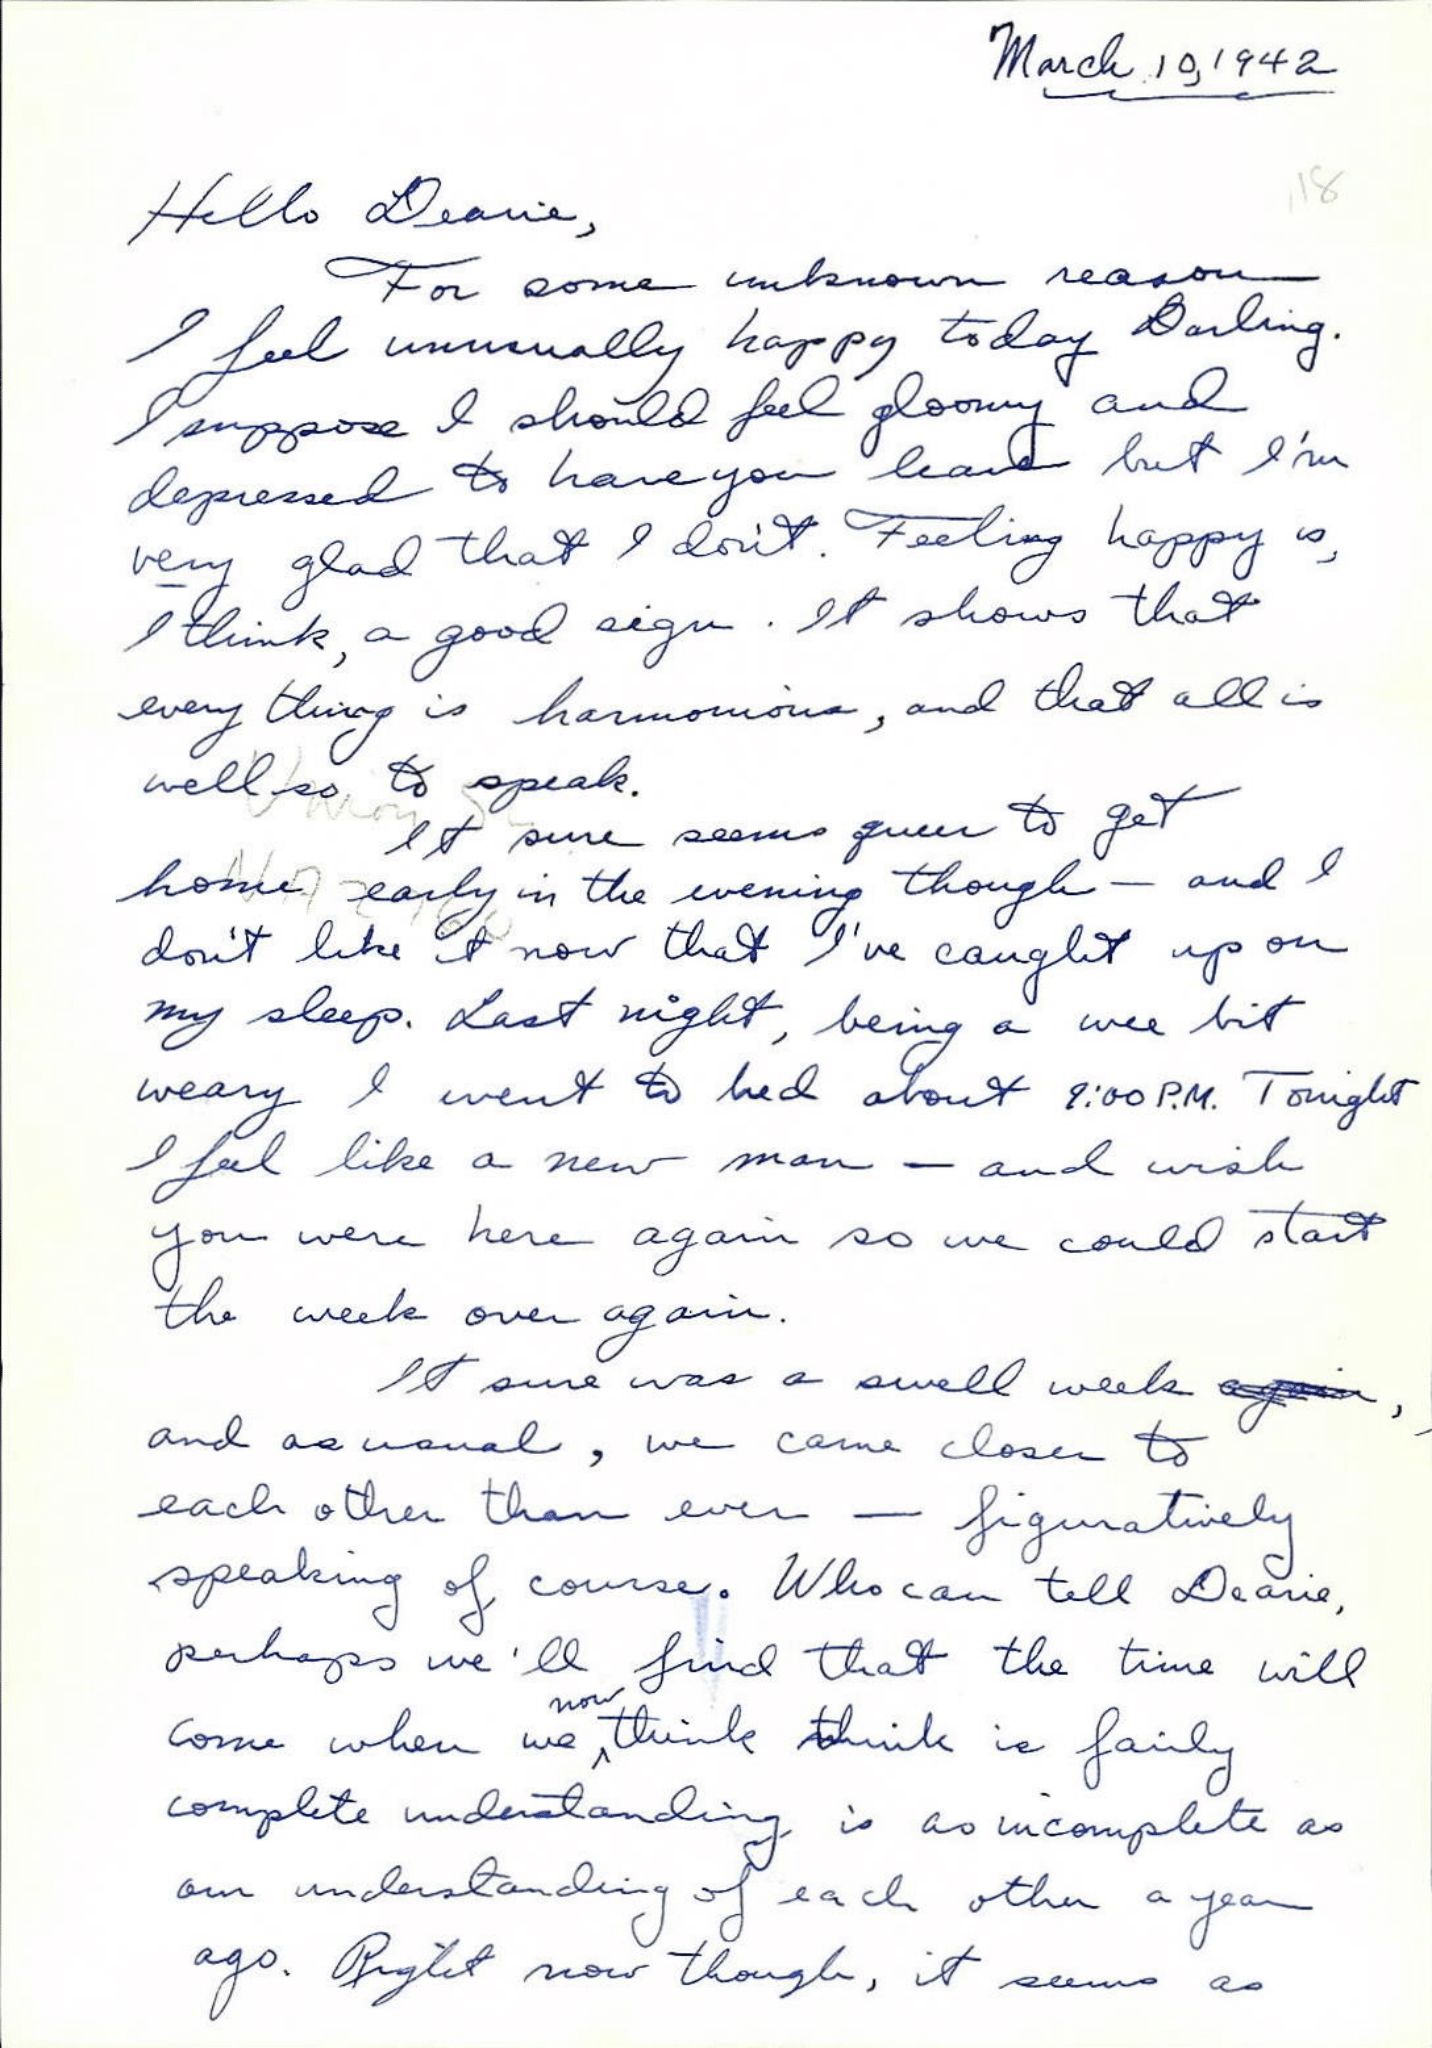 March 10, 1942
118
Hello Dearie,
For some unknown reason
I feel unusually happy today Darling.
I suppose I should feel gloomy and
depressed to have you leave but I'm
very glad that I don't. Feeling happy is,
I think, a good sign. It shows that
every thing is harmonious, and that all is
well so to speak.
It sure seems queer to get
home early in the evening though — and I
don't like it now that I've caught up on
my sleep. Last night, being a wee bit
weary I went to bed about 9:00 P.M. Tonight
I feel like a new man — and wish
you were here again so we could start
the week over again.
It sure was a swell week again,
and as usual, we came closer to
each other than ever — figuratively
speaking of course. Who can tell Dearie,
perhaps we'll find that the time will
come when we now think think is fairly
complete understanding is as incomplete as
our understanding of each other a year
ago. Right now though, it seems as